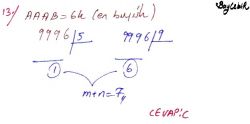 13) AAAB=6k (en büyük)
9996 | 5    9996 | 9
1    6
m+n=7
CEVAP:C